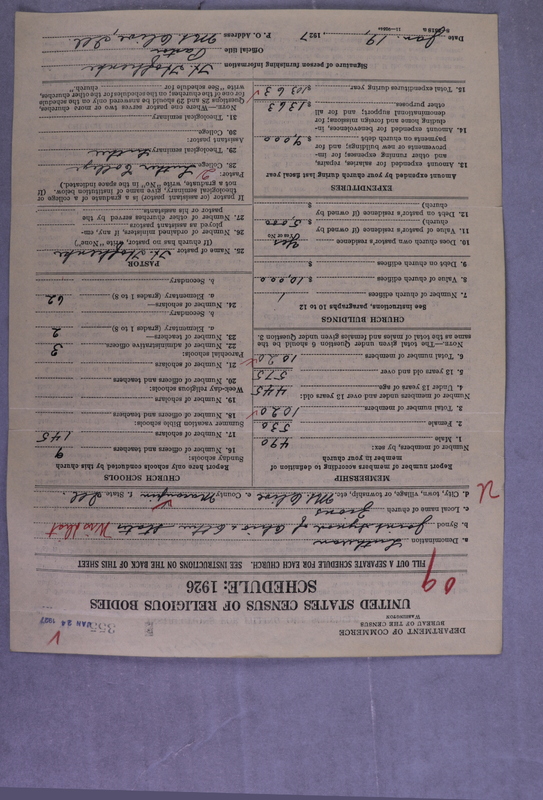 DEPARTMENT OF COMMERCE
BUREAU OF THE CENSUS
WASHINGTON
JAN 24 1927
UNITED STATES CENSUS OF RELIGIOUS BODIES
SCHEDULE: 1926
09
FILL OUT A SEPARATE SCHEDULE FOR EACH CHURCH. SEE INSTRUCTIONS ON THE BACK OF THIS SHEET
a. Denomination Lutheran
b. Synod Joint Synod of Ohio & other States
c. Local name of church Zions
d. City, town, village, or township, etc. Mt. Olive e. County Macoupin f. State Ill.
MEMBERSHIP
Report number of members according to definition of member in your church
Number of members, by sex:
1. Male 490
2. Female 530
3. Total number of members 1020
Number of members under and over 13 years old:
4. Under 13 years of age 445
5. 13 years old and over 575
6. Total number of members 1020
NOTE.—The total given under Question 6 should be the same as the total of males and females given under Question 3.
CHURCH BUILDINGS
See instructions, paragraphs 10 to 12
7. Number of church edifices 1
8. Value of church edifices $ 10,000
9. Debt on church edifices $
10. Does church own pastor's residence Yes
(Yes or No)
11. Value of pastor's residence (if owned by church) $ 5,000
12. Debt on pastor's residence (if owned by church) $
EXPENDITURES
Amount expended by your church during last fiscal year
13. Amount expended for salaries, repairs, and other running expenses; for improvements or new buildings; and for payments on church debt $ 9,000
14. Amount expended for benevolences, including home and foreign missions; for denominational support; and for all other purposes $ 1363
15. Total expenditures during year $ 10363
CHURCH SCHOOLS
Report here only schools conducted by this church
Sunday schools:
16. Number of officers and teachers 9
17. Number of scholars 145
Summer vacation Bible schools:
18. Number of officers and teachers
19. Number of scholars
Week-day religious schools:
20. Number of officers and teachers
21. Number of scholars
Parochial schools:
22. Number of administrative officers 3
23. Number of teachers—
a. Elementary (grades 1 to 8) 2
b. Secondary
24. Number of scholars—
a. Elementary (grades 1 to 8) 62
b. Secondary
PASTOR
25. Name of pastor
(If church has no pastor, write "None")
26. Number of ordained ministers, if any, employed as assistant pastors
27. Number of other churches served by the pastor or his assistants
If pastor (or assistant pastor) is a graduate of a college or theological seminary, give name of institution below. (If not a graduate, write "No" in the space indicated.)
Pastor:
28. College
29. Theological seminary
30. College
31. Theological seminary
NOTE.—Where one pastor serves two or more churches, Questions 28 and 29 should be answered only on the schedule for one of the churches; on the schedules for the other churches, write "See schedule for church."
Signature of person furnishing information
Official title Pastor
Date Jan. 19, 1927 P. O. Address Mt. Olive, Ill.